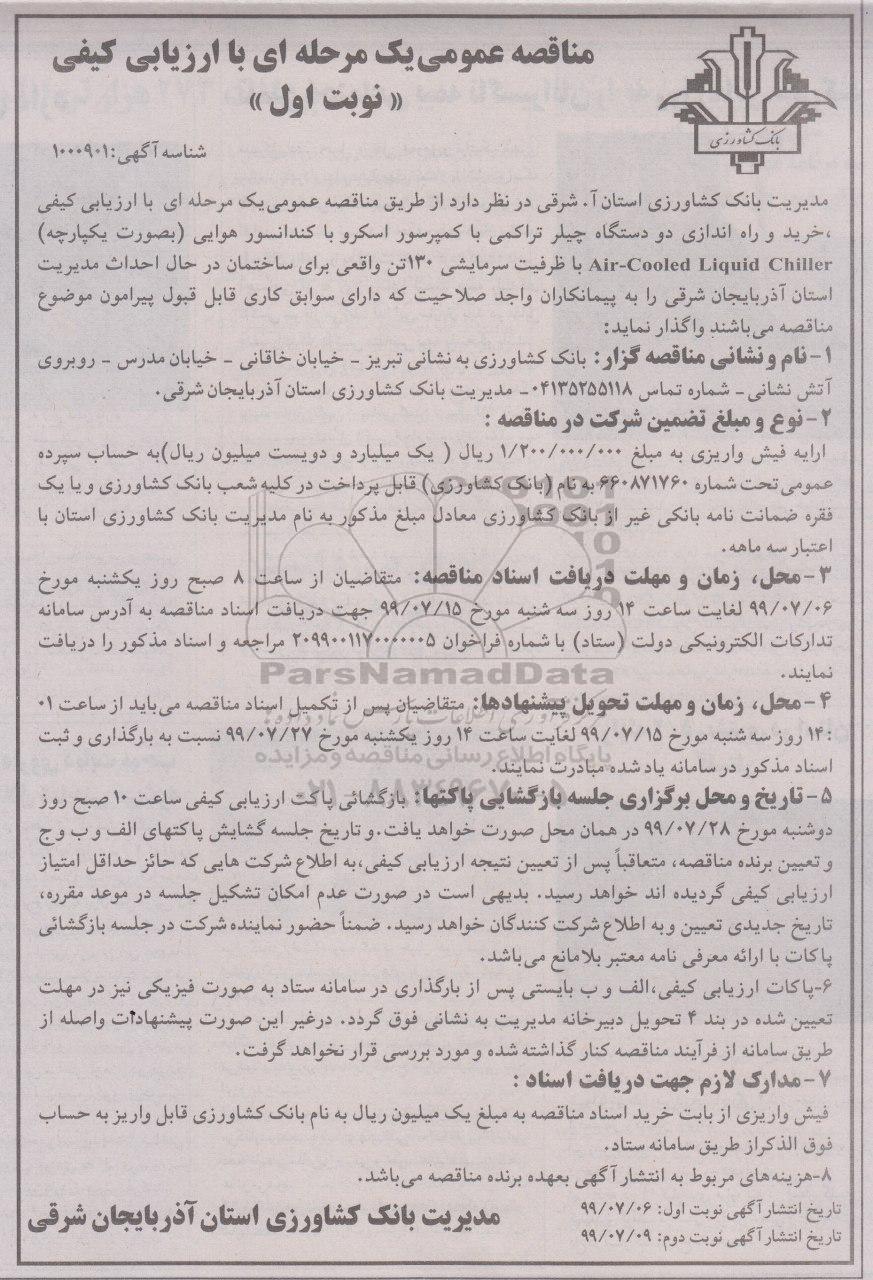 مناقصه عمومی یک مرحله ای با ارزیابی کیفی
« نوبت اول »
بانک کشاورزی
شناسه آگهی: ۱۰۰۰۹۰۱
مدیریت بانک کشاورزی استان آ. شرقی در نظر دارد از طریق مناقصه عمومی یک مرحله ای با ارزیابی کیفی
،خرید و راه اندازی دو دستگاه چیلر تراکمی با کمپرسور اسکرو با کندانسور هوایی (بصورت یکپارچه)
Air-Cooled Liquid Chiller با ظرفیت سرمایشی ۱۳۰تن واقعی برای ساختمان در حال احداث مدیریت
استان آذربایجان شرقی را به پیمانکاران واجد صلاحیت که دارای سوابق کاری قابل قبول پیرامون موضوع
مناقصه می‌باشند واگذار نماید:
۱-نام و نشانی مناقصه گزار: بانک کشاورزی به نشانی تبریز - خیابان خاقانی - خیابان مدرس - روبروی
آتش نشانی - شماره تماس ۰۴۱۳۵۲۵۵۱۱۸- مدیریت بانک کشاورزی استان آذربایجان شرقی.
۲-نوع و مبلغ تضمین شرکت در مناقصه :
ارایه فیش واریزی به مبلغ ۱/۲۰۰/۰۰۰/۰۰۰ ریال ( یک میلیارد و دویست میلیون ریال)به حساب سپرده
عمومی تحت شماره ۶۶۰۸۷۱۷۶۰ به نام (بانک کشاورزی) قابل پرداخت در کلیه شعب بانک کشاورزی و یا یک
فقره ضمانت نامه بانکی غیر از بانک کشاورزی معادل مبلغ مذکور به نام مدیریت بانک کشاورزی استان با
اعتبار سه ماهه.
۳-محل، زمان و مهلت دریافت اسناد مناقصه: متقاضیان از ساعت ۸ صبح روز یکشنبه مورخ
۹۹/۰۷/۰۶ لغایت ساعت ۱۴ روز سه شنبه مورخ ۹۹/۰۷/۱۵ جهت دریافت اسناد مناقصه به آدرس سامانه
تدارکات الکترونیکی دولت (ستاد) با شماره فراخوان ۲۰۹۹۰۰۱۱۷۰۰۰۰۰۰۵ مراجعه و اسناد مذکور را دریافت
نمایند.
ParsNamadData
۴-محل، زمان و مهلت تحویل پیشنهادها: متقاضیان پس از تکمیل اسناد مناقصه می‌باید از ساعت ۰۱
۱۴۰ روز سه شنبه مورخ ۹۹/۰۷/۱۵ لغایت ساعت ۱۴ روز یکشنبه مورخ ۹۹/۰۷/۲۷ نسبت به بارگذاری و ثبت
پایگاه اطلاع رسانی مناقصه و مزایده
اسناد مذکور در سامانه یاد شده مبادرت نمایند.
۵-تاریخ و محل برگزاری جلسه بازگشایی پاکتها: بازگشائی پاکت ارزیابی کیفی ساعت ۱۰ صبح روز
دوشنبه مورخ ۹۹/۰۷/۲۸ در همان محل صورت خواهد یافت.و تاریخ جلسه گشایش پاکتهای الف و ب و ج
و تعیین برنده مناقصه، متعاقباً پس از تعیین نتیجه ارزیابی کیفی،به اطلاع شرکت هایی که حائز حداقل امتیاز
ارزیابی کیفی گردیده اند خواهد رسید. بدیهی است در صورت عدم امکان تشکیل جلسه در موعد مقرره،
تاریخ جدیدی تعیین و به اطلاع شرکت کنندگان خواهد رسید. ضمناً حضور نماینده شرکت در جلسه بازگشائی
پاکات با ارائه معرفی نامه معتبر بلامانع می‌باشد.
۶-پاکات ارزیابی کیفی،الف و ب بایستی پس از بارگذاری در سامانه ستاد به صورت فیزیکی نیز در مهلت
تعیین شده در بند ۴ تحویل دبیرخانه مدیریت به نشانی فوق گردد. درغیر این صورت پیشنهادات واصله از
طریق سامانه از فرآیند مناقصه کنار گذاشته شده و مورد بررسی قرار نخواهد گرفت.
۷-مدارک لازم جهت دریافت اسناد :
فیش واریزی از بابت خرید اسناد مناقصه به مبلغ یک میلیون ریال به نام بانک کشاورزی قابل واریز به حساب
فوق الذکراز طریق سامانه ستاد.
۸-هزینه‌های مربوط به انتشار آگهی بعهده برنده مناقصه می‌باشد.
تاریخ انتشار آگهی نوبت اول: ۹۹/۰۷/۰۶
تاریخ انتشار آگهی نوبت دوم: ۹۹/۰۷/۰۹
مدیریت بانک کشاورزی استان آذربایجان شرقی